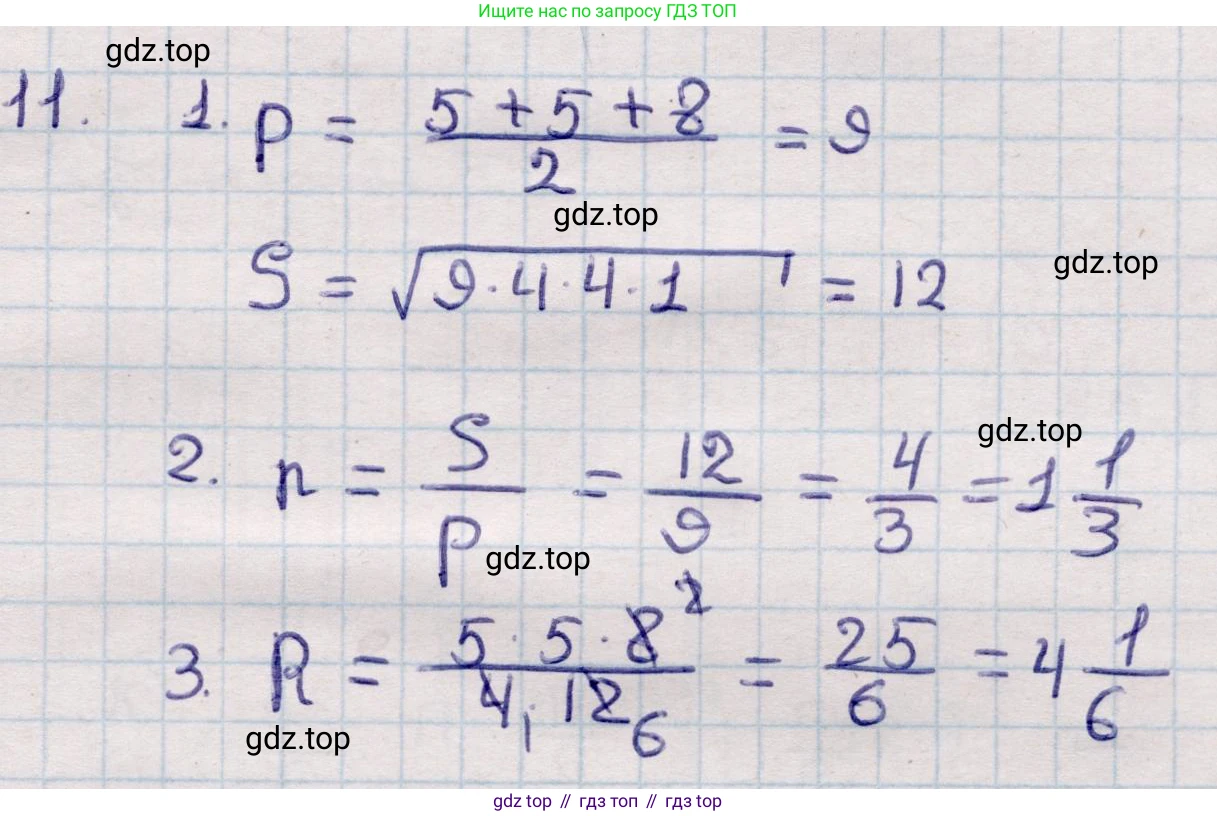 Ищите нас по запросу ГДЗ ТОП
gdz.top
11. 1. p = (5 + 5 + 8) / 2 = 9
gdz.top
S = √(9·4·4·1) = 12
gdz.top
gdz.top
2. r = S / p = 12 / 9 = 4 / 3 = 1 1/3
gdz.top
3. R = (5·5·8 2) / (4 1·12 6) = 25 / 6 = 4 1/6
gdz.top
gdz top // гдз топ // gdz top